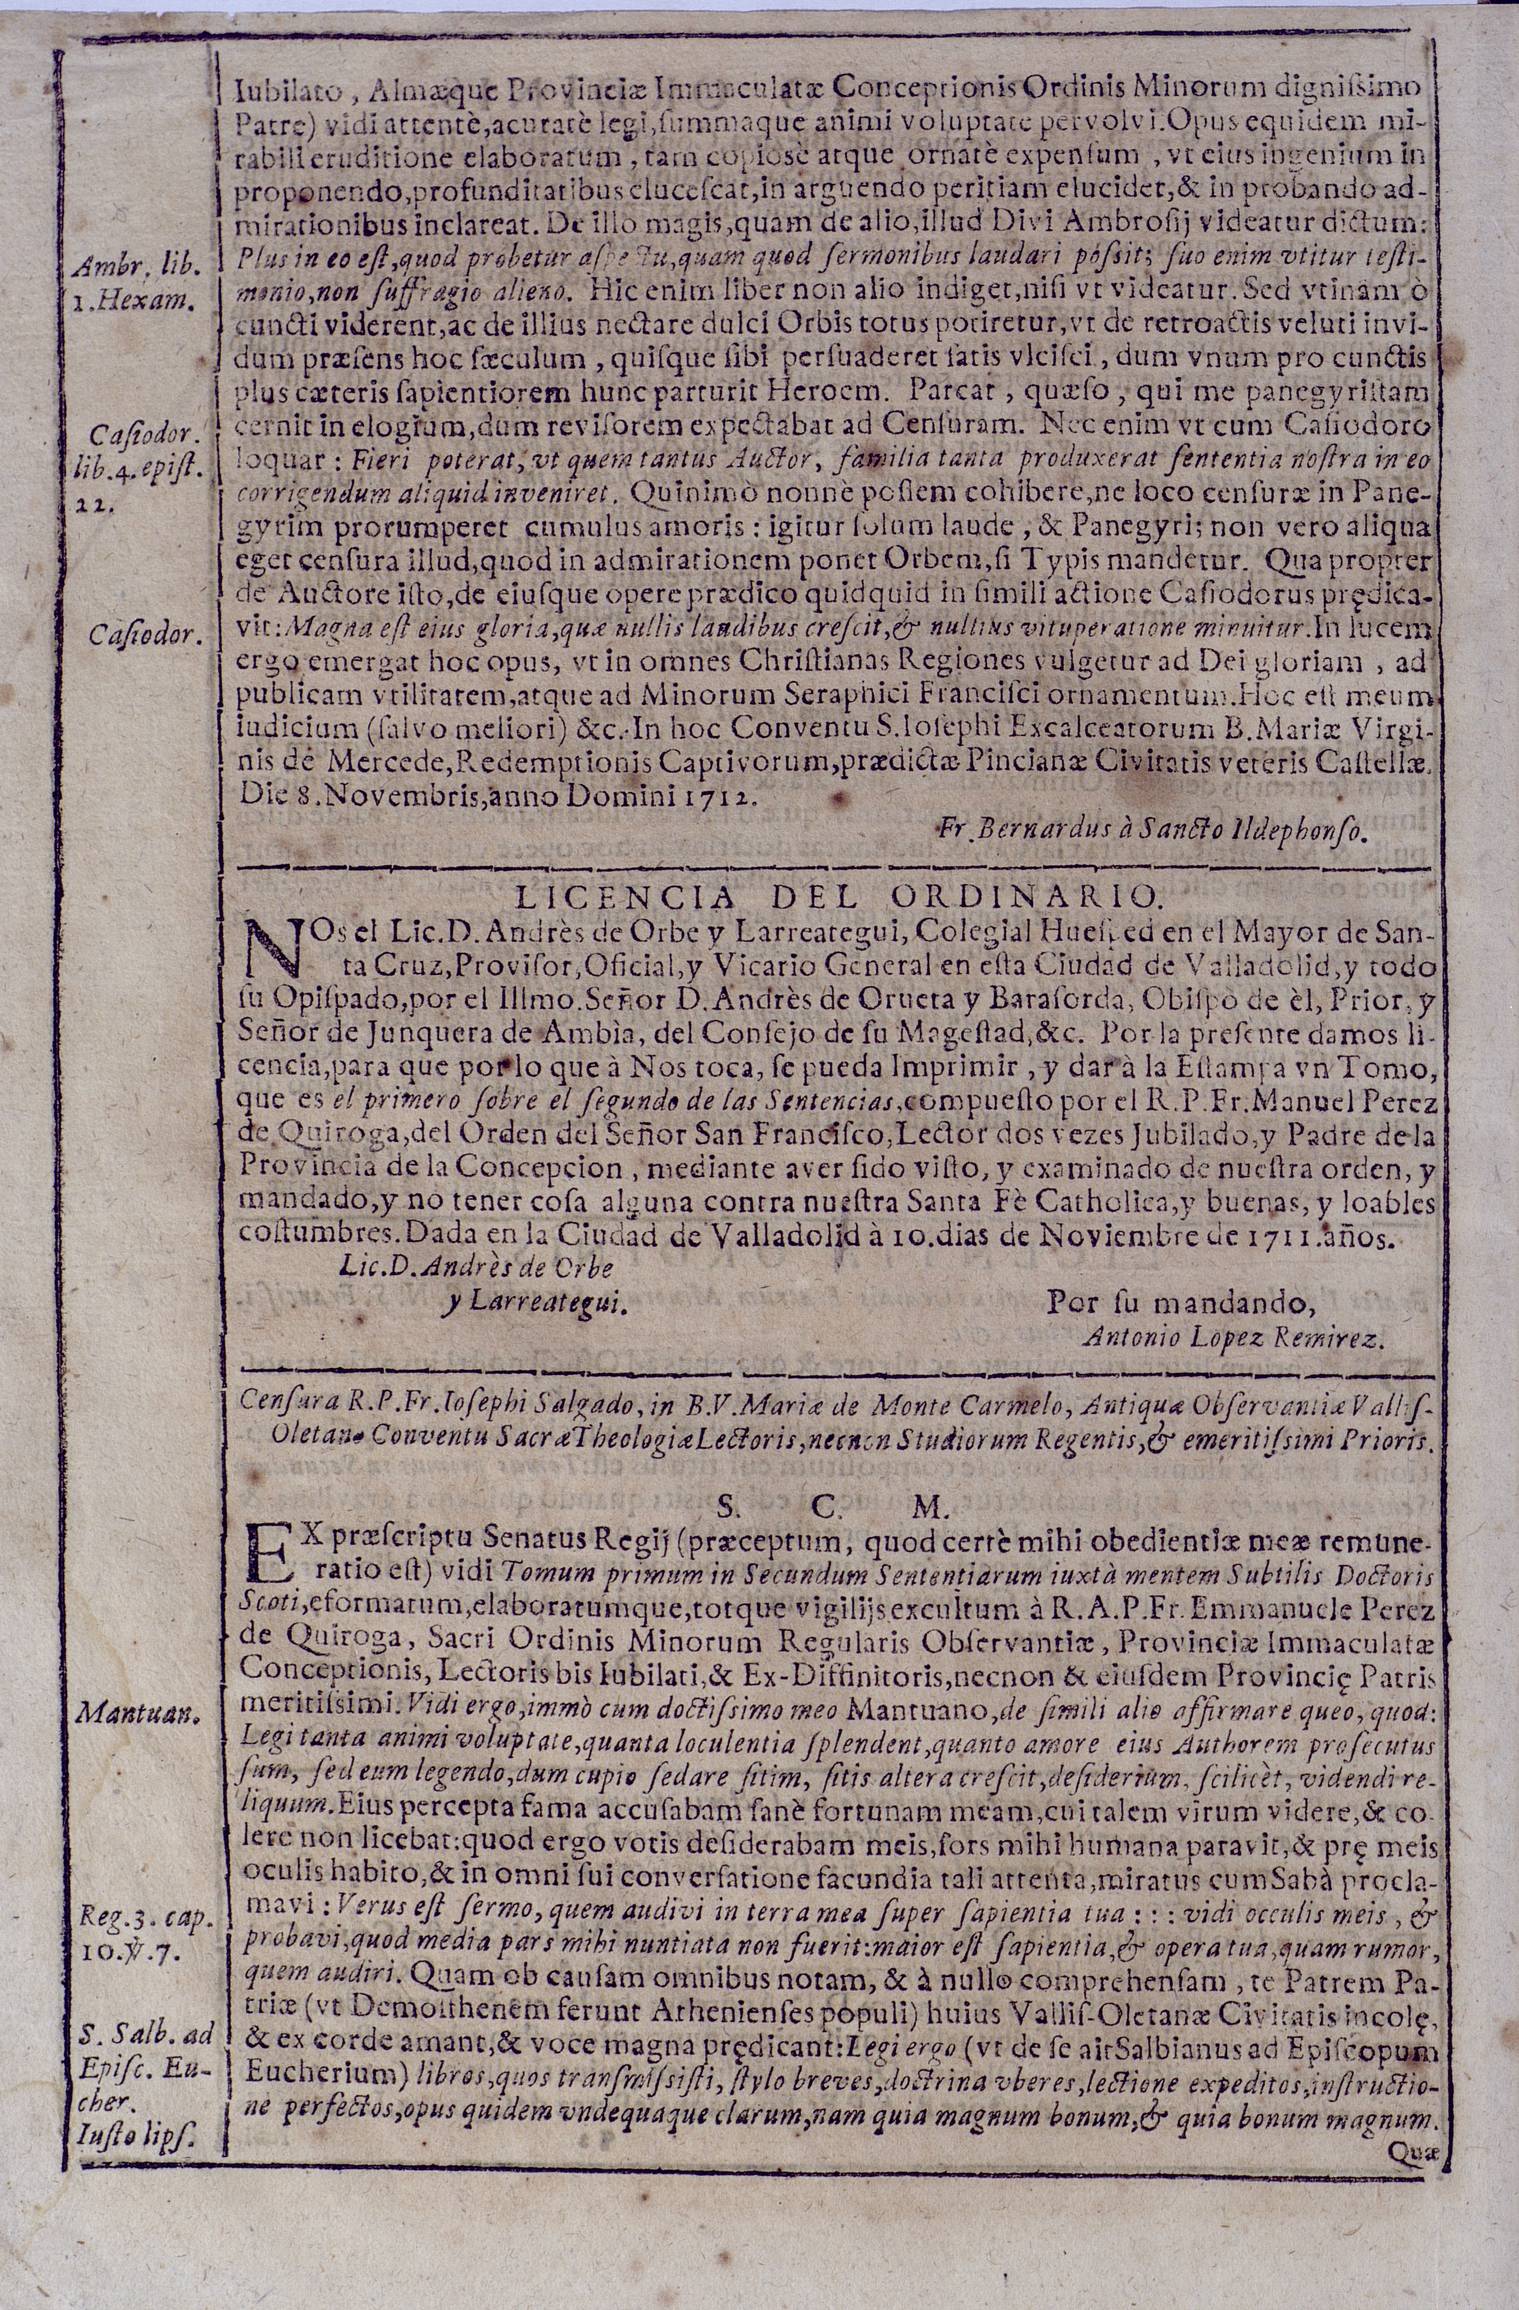 Iubilato, Almæque Provinciæ Immaculatæ Conceptionis Ordinis Minorum digniſsimo
Patre) vidi attentè, acuratè legi, ſummaque animi voluptate pervolvi. Opus equidem mi-
rabili eruditione elaboratum, tam copiosè atque ornatè expenſum, vt eius ingenium in
proponendo, profunditatibus eluceſcat, in arguendo peritiam elucidet, & in probando ad-
mirationibus inclareat. De illo magis, quam de alio, illud Divi Ambroſij videatur dictum:
Ambr. lib.
1. Hexam.
Plus in eo eſt, quod probetur aſpectu, quam quod ſermonibus laudari poſsit; ſuo enim vtitur teſti-
monio, non ſuffragio alieno. Hic enim liber non alio indiget, niſi vt videatur. Sed vtinam ò
cuncti viderent, ac de illius nectare dulci Orbis totus potiretur, vt de retroactis veluti invi-
dum præſens hoc ſæculum, quiſque ſibi perſuaderet ſatis vlciſci, dum vnum pro cunctis
plus cæteris ſapientiorem hunc parturit Heroem. Parcat, quæſo, qui me panegyriſtam
Caſiodor.
lib. 4. epiſt.
22.
cernit in elogium, dum reviſorem expectabat ad Cenſuram. Nec enim vt cum Caſiodoro
loquar: Fieri poterat, vt quem tantus Auctor, familia tanta produxerat ſententia noſtra in eo
corrigendum aliquid inveniret. Quinimò nonnè poſſem cohibere, ne loco cenſuræ in Pane-
gyrim prorumperet cumulus amoris: igitur ſolum laude, & Panegyri; non vero aliqua
eget cenſura illud, quod in admirationem ponet Orbem, ſi Typis mandetur. Qua propter
de Auctore iſto, de eiuſque opere prædico quidquid in ſimili actione Caſiodorus prędica-
Caſiodor.
vit: Magna eſt eius gloria, quæ nullis laudibus creſcit, & nullius vituperatione minuitur. In lucem
ergo emergat hoc opus, vt in omnes Chriſtianas Regiones vulgetur ad Dei gloriam, ad
publicam vtilitatem, atque ad Minorum Seraphici Franciſci ornamentum. Hoc eſt meum
iudicium (ſalvo meliori) &c. In hoc Conventu S. Ioſephi Excalceatorum B. Mariæ Virgi-
nis de Mercede, Redemptionis Captivorum, prædictæ Pincianæ Civitatis veteris Caſtellæ.
Die 8. Novembris, anno Domini 1712.
Fr. Bernardus à Sancto Ildephonſo.
LICENCIA DEL ORDINARIO.
NOs el Lic. D. Andrès de Orbe y Larreategui, Colegial Hueſped en el Mayor de San-
ta Cruz, Proviſor, Oficial, y Vicario General en eſta Ciudad de Valladolid, y todo
ſu Opiſpado, por el Illmo. Señor D. Andrès de Orueta y Baraſorda, Obiſpo de èl, Prior, y
Señor de Junquera de Ambia, del Conſejo de ſu Mageſtad, &c. Por la preſente damos li-
cencia, para que por lo que à Nos toca, ſe pueda Imprimir, y dar à la Eſtampa vn Tomo,
que es el primero ſobre el ſegundo de las Sentencias, compueſto por el R. P. Fr. Manuel Perez
de Quiroga, del Orden del Señor San Franciſco, Lector dos vezes Jubilado, y Padre de la
Provincia de la Concepcion, mediante aver ſido viſto, y examinado de nueſtra orden, y
mandado, y no tener coſa alguna contra nueſtra Santa Fè Catholica, y buenas, y loables
coſtumbres. Dada en la Ciudad de Valladolid à 10. dias de Noviembre de 1711. años.
Lic. D. Andrès de Orbe
y Larreategui.
Por ſu mandando,
Antonio Lopez Remirez.
Cenſura R. P. Fr. Ioſephi Salgado, in B. V. Mariæ de Monte Carmelo, Antiquæ Obſervantiæ Valliſ-
Oletanæ Conventu Sacræ Theologiæ Lectoris, necnon Studiorum Regentis, & emeritiſsimi Prioris.
S. C. M.
EX præſcriptu Senatus Regij (præceptum, quod certè mihi obedientiæ meæ remune-
ratio eſt) vidi Tomum primum in Secundum Sententiarum iuxtà mentem Subtilis Doctoris
Scoti, eformatum, elaboratumque, totque vigilijs excultum à R. A. P. Fr. Emmanuele Perez
de Quiroga, Sacri Ordinis Minorum Regularis Obſervantiæ, Provinciæ Immaculatæ
Conceptionis, Lectoris bis Iubilati, & Ex-Diffinitoris, necnon & eiuſdem Provincię Patris
Mantuan.
meritiſsimi. Vidi ergo, immò cum doctiſsimo meo Mantuano, de ſimili alio affirmare queo, quod:
Legi tanta animi voluptate, quanta loculentia ſplendent, quanto amore eius Authorem proſecutus
ſum, ſed eum legendo, dum cupio ſedare ſitim, ſitis altera creſcit, deſiderium, ſcilicèt, videndi re-
liquum. Eius percepta fama accuſabam ſanè fortunam meam, cui talem virum videre, & co-
lere non licebat: quod ergo votis deſiderabam meis, ſors mihi humana paravit, & prę meis
oculis habito, & in omni ſui converſatione facundia tali attenta, miratus cum Sabà procla-
Reg. 3. cap.
10. ℣. 7.
mavi: Verus eſt ſermo, quem audivi in terra mea ſuper ſapientia tua : : : vidi occulis meis, &
probavi, quod media pars mihi nuntiata non fuerit: maior eſt ſapientia, & opera tua, quam rumor,
quem audiri. Quam ob cauſam omnibus notam, & à nullo comprehenſam, te Patrem Pa-
triæ (vt Demoſthenem ferunt Athenienſes populi) huius Valliſ-Oletanæ Civitatis incolę,
S. Salb. ad
Epiſc. Eu-
cher.
Iuſto lipſ.
& ex corde amant, & voce magna prędicant: Legi ergo (vt de ſe ait Salbianus ad Epiſcopum
Eucherium) libros, quos tranſmiſsiſti, ſtylo breves, doctrina vberes, lectione expeditos, inſtructio-
ne perfectos, opus quidem vndequaque clarum, nam quia magnum bonum, & quia bonum magnum.
Quæ